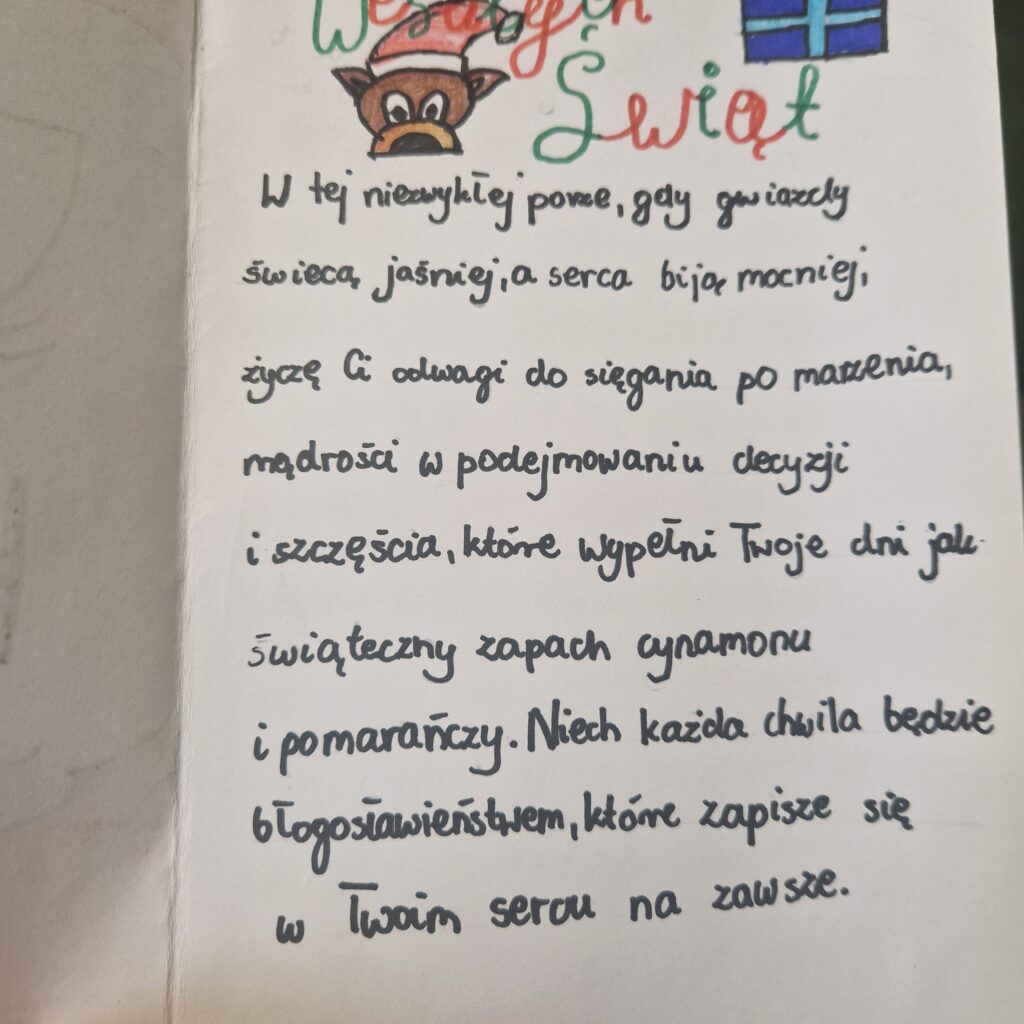 Wesołych
Świąt
W tej niezwykłej porze, gdy gwiazdy
świecą jaśniej, a serca biją mocniej,
życzę Ci odwagi do sięgania po marzenia,
mądrości w podejmowaniu decyzji
i szczęścia, które wypełni Twoje dni jak
świąteczny zapach cynamonu
i pomarańczy. Niech każda chwila będzie
błogosławieństwem, które zapisze się
w Twoim sercu na zawsze.